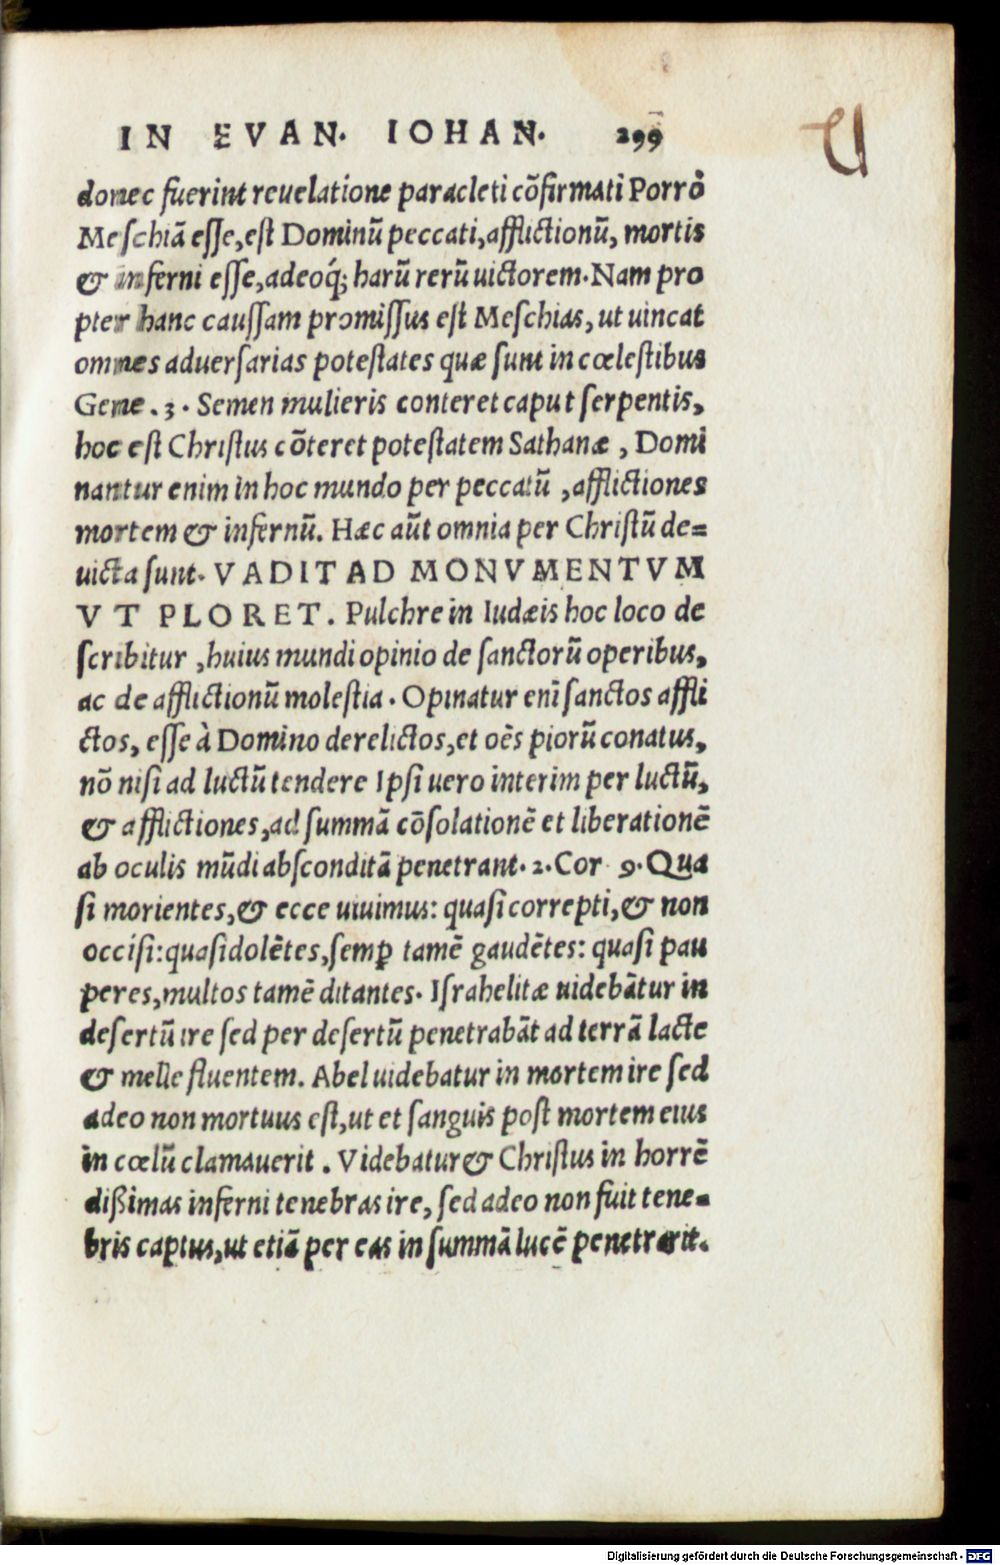 IN EVAN. IOHAN. 299
U
donec fuerint reuelatione paracleti cõfirmati Porrò
Meſchiã eſſe, eſt Dominũ peccati, afflictionũ, mortis
& inferni eſſe, adeoq́; harũ rerũ uictorem. Nam pro
pter hanc cauſſam promiſſus eſt Meſchias, ut uincat
omnes aduerſarias poteſtates quæ ſunt in cœleſtibus
Gene. 3. Semen mulieris conteret caput ſerpentis,
hoc eſt Chriſtus cõteret poteſtatem Sathanæ, Domi
nantur enim in hoc mundo per peccatũ, afflictiones
mortem & infernũ. Hæc aũt omnia per Chriſtũ de=
uicta ſunt. VADIT AD MONVMENTVM
VT PLORET. Pulchre in Iudæis hoc loco de
ſcribitur, huius mundi opinio de ſanctorũ operibus,
ac de afflictionũ moleſtia. Opinatur enĩ ſanctos affli
ctos, eſſe à Domino derelictos, et oẽs piorũ conatus,
nõ niſi ad luctũ tendere Ipſi uero interim per luctũ,
& afflictiones, ad ſummã cõſolationẽ et liberationẽ
ab oculis mũdi abſconditã penetrant. 2. Cor 9. Qua
ſi morientes, & ecce uiuimus: quaſi correpti, & non
occiſi: quaſi dolẽtes, ſemꝑ tamẽ gaudẽtes: quaſi pau
peres, multos tamẽ ditantes. Iſrahelitæ uidebãtur in
deſertũ ire ſed per deſertũ penetrabãt ad terrã lacte
& melle fluentem. Abel uidebatur in mortem ire ſed
adeo non mortuus eſt, ut et ſanguis poſt mortem eius
in cœlũ clamauerit. Videbatur & Chriſtus in horrẽ
dißimas inferni tenebras ire, ſed adeo non fuit tene=
bris captus, ut etiã per eas in ſummã lucẽ penetrarit.
Digitalisierung gefördert durch die Deutsche Forschungsgemeinschaft - DFG